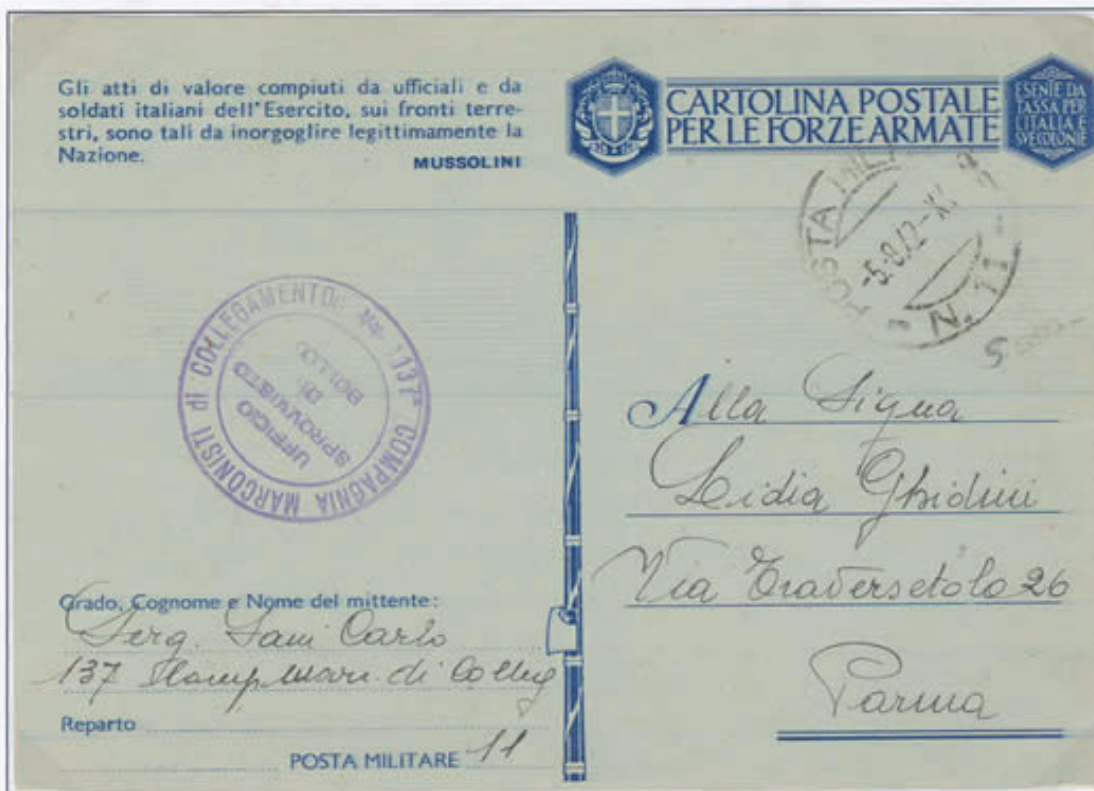 Gli atti di valore compiuti da ufficiali e da
soldati italiani dell'Esercito, sui fronti terre-
stri, sono tali da inorgoglire legittimamente la
Nazione.
MUSSOLINI
CARTOLINA POSTALE
PER LE FORZE ARMATE
ESENTE DA
TASSA PER
L'ITALIA E
SVE COLONIE
POSTA N. 11
137ª COMPAGNIA MARCONISTI di COLLEGAMENTO
UFFICIO
SPROVVISTO
DI
BOLLO
Alla Signa
Lidia Ghidini
Via Traversetolo 26
Parma
Grado, Cognome e Nome del mittente:
Serg. Sani Carlo
137 di
Reparto
POSTA MILITARE 11